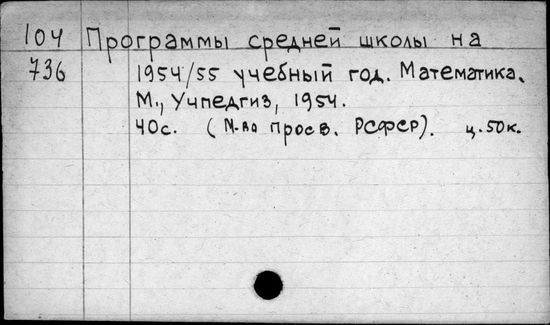 104 Программы средней школы на
736 1954/55 учебный год. Математика.
М., Учпедгиз, 1954.
40с. (М-во просв. РСФСР). ц.50к.